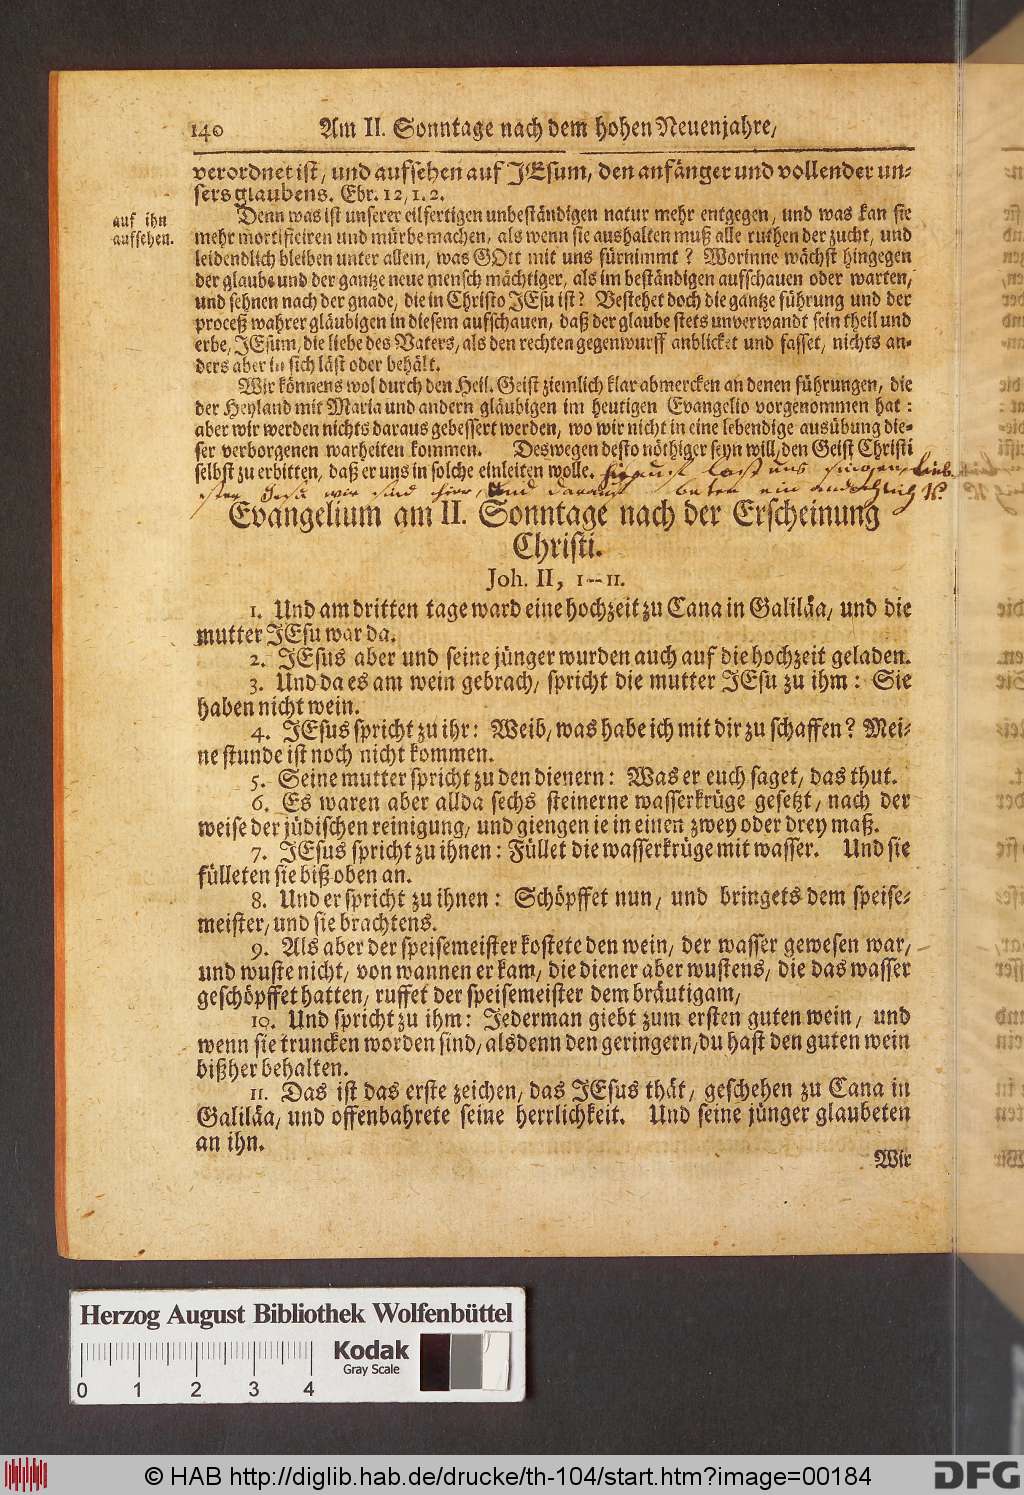 140 Am II. Sonntage nach dem hohen Neuenjahre/
verordnet ist, und aufsehen auf JEsum, den anfänger und vollender un-
sers glaubens. Ebr. 12, 1. 2.
auf ihn
aufsehen.
Denn was ist unserer eilfertigen unbeständigen natur mehr entgegen, und was kan sie
mehr mortificiren und mürbe machen, als wenn sie aushalten muß alle ruthen der zucht, und
leidendlich bleiben unter allem, was GOtt mit uns fürnimmt? Worinne wächst hingegen
der glaube und der gantze neue mensch mächtiger, als im beständigen aufschauen oder warten,
und sehnen nach der gnade, die in Christo JEsu ist? Bestehet doch die gantze führung und der
proceß wahrer gläubigen in diesem aufschauen, daß der glaube stets unverwandt sein theil und
erbe, JEsum, die liebe des Vaters, als den rechten gegenwurff anblicket und fasset, nichts an-
ders aber in sich läst oder behält.
Wir könnens wol durch den Heil. Geist ziemlich klar abmercken an denen führungen, die
der Heyland mit Maria und andern gläubigen im heutigen Evangelio vorgenommen hat:
aber wir werden nichts daraus gebessert werden, wo wir nicht in eine lebendige ausübung die-
ser verborgenen warheiten kommen. Deswegen desto nöthiger seyn will, den Geist Christi
selbst zu erbitten, daß er uns in solche einleiten wolle. last uns singen, Lieb-
ster Jesu wir sind hier, und darauf beten ein andächtig
Evangelium am II. Sonntage nach der Erscheinung
Christi.
Joh. II, 1--11.
1. Und am dritten tage ward eine hochzeit zu Cana in Galiläa/ und die
mutter JEsu war da.
2. JEsus aber und seine jünger wurden auch auf die hochzeit geladen.
3. Und da es am wein gebrach/ spricht die mutter JEsu zu ihm: Sie
haben nicht wein.
4. JEsus spricht zu ihr: Weib/ was habe ich mit dir zu schaffen? Mei-
ne stunde ist noch nicht kommen.
5. Seine mutter spricht zu den dienern: Was er euch saget, das thut.
6. Es waren aber allda sechs steinerne wasserkrüge gesetzt/ nach der
weise der jüdischen reinigung/ und giengen ie in einen zwey oder drey maß.
7. JEsus spricht zu ihnen: Füllet die wasserkrüge mit wasser. Und sie
fülleten sie biß oben an.
8. Und er spricht zu ihnen: Schöpffet nun/ und bringets dem speise-
meister/ und sie brachtens.
9. Als aber der speisemeister kostete den wein/ der wasser gewesen war/
und wuste nicht/ von wannen er kam/ die diener aber wustens/ die das wasser
geschöpffet hatten/ ruffet der speisemeister dem bräutigam/
10. Und spricht zu ihm: Jederman giebt zum ersten guten wein/ und
wenn sie truncken worden sind/ alsdenn den geringern/ du hast den guten wein
bißher behalten.
11. Das ist das erste zeichen/ das JEsus thät/ geschehen zu Cana in
Galiläa/ und offenbahrete seine herrlichkeit. Und seine jünger glaubeten
an ihn.
Wir
Herzog August Bibliothek Wolfenbüttel
0 1 2 3 4
Kodak
Gray Scale
© HAB http://diglib.hab.de/drucke/th-104/start.htm?image=00184
DFG